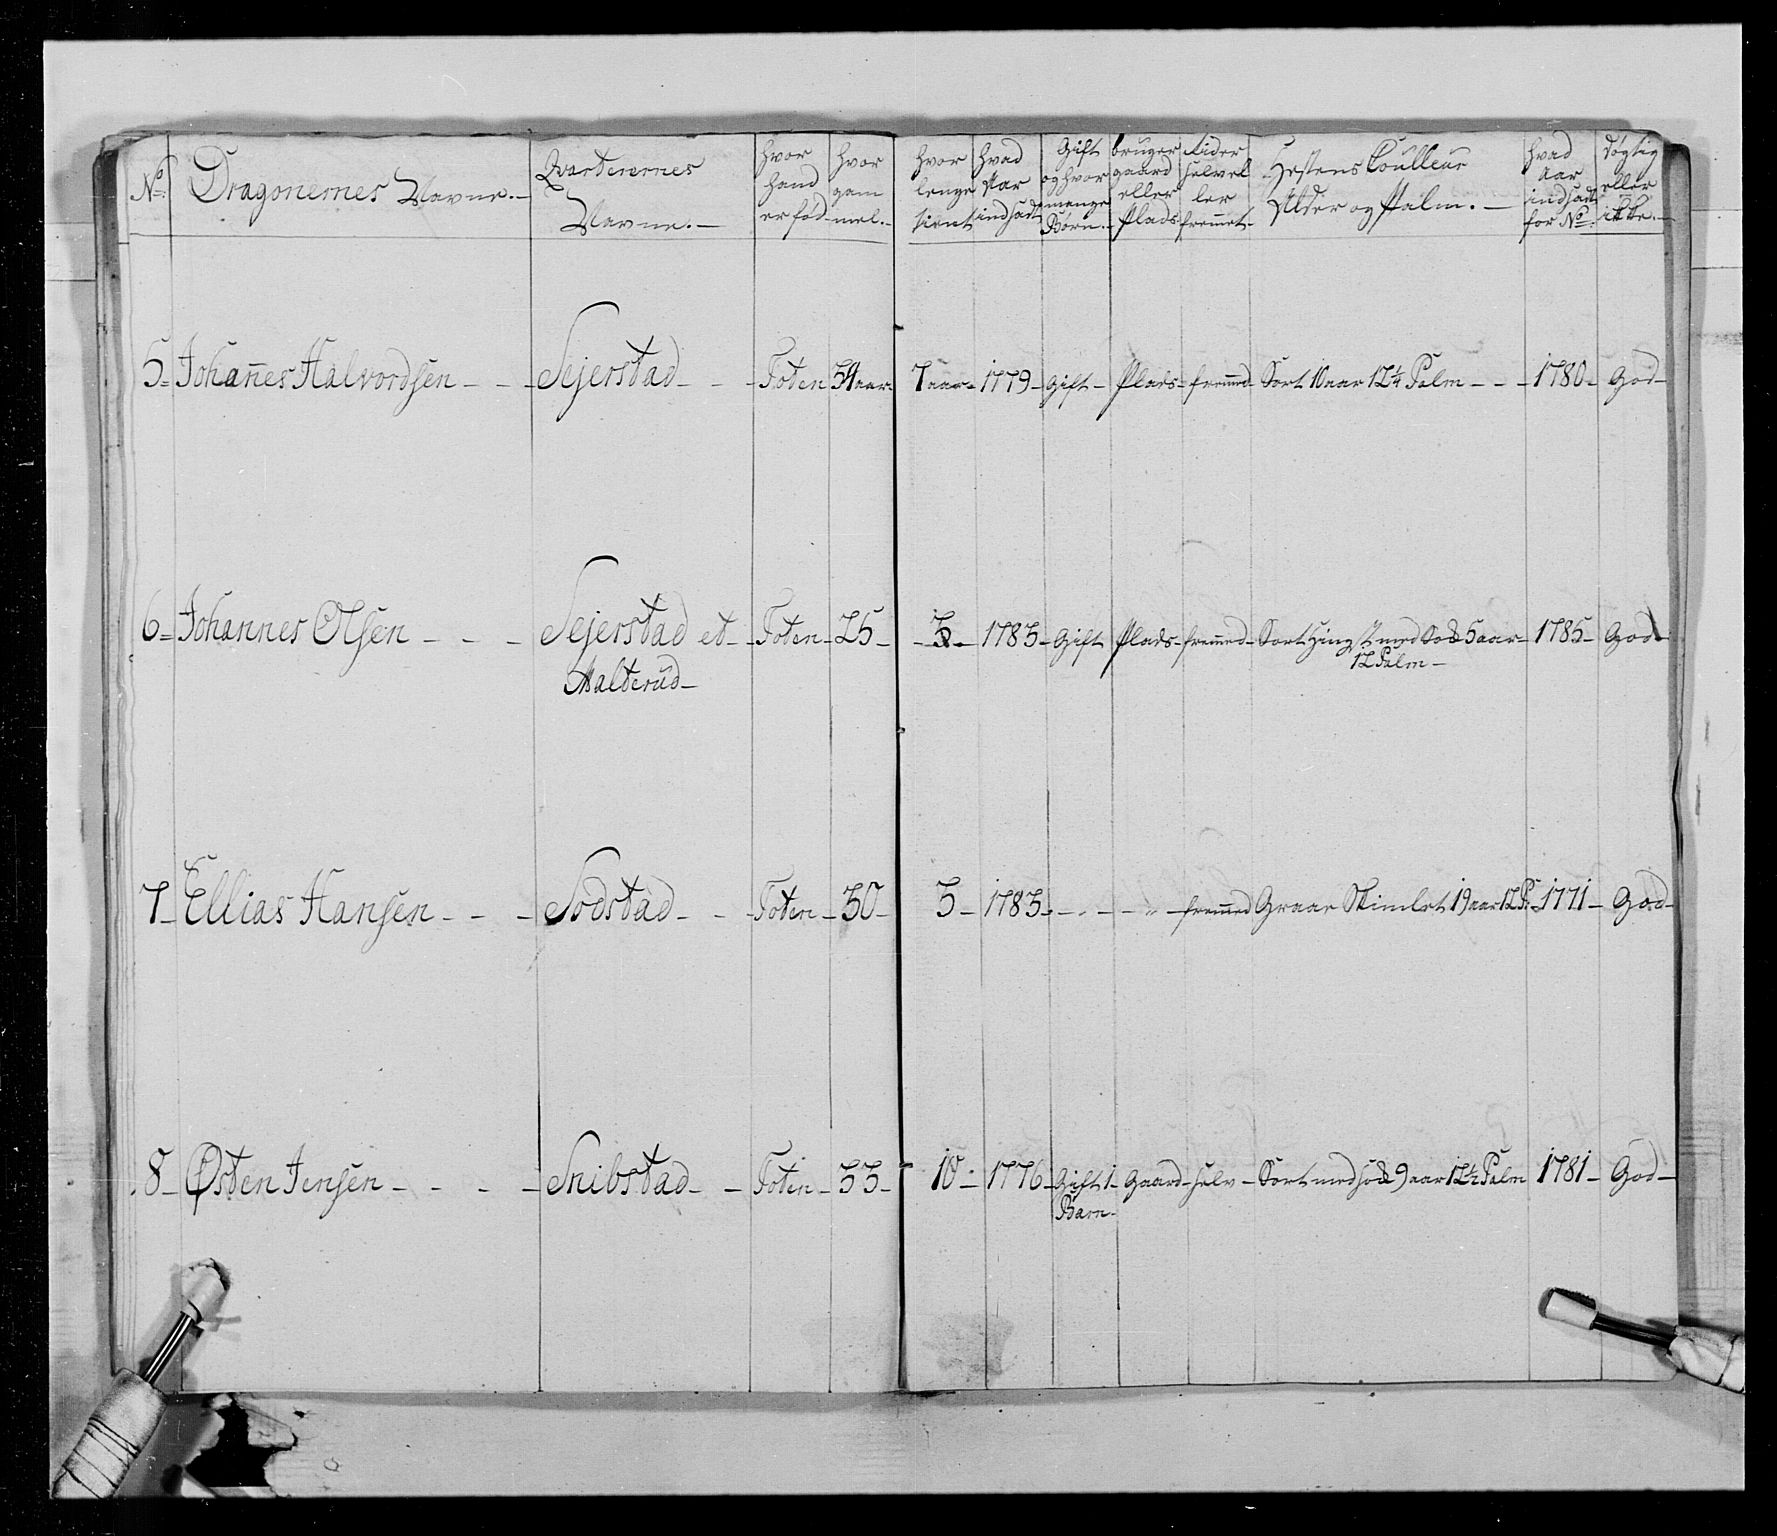 No. Dragonernes Navne.— Qvarterernes Navne.— hvor hand er fød hvor gam mel.— hvor lenge tient hvad Aar indsadt Gift og hvor mange Børn.— bruger gaard eller Plads rider selv el ler fremet. Hestens Coulleur Alder og Palm.— hvad Aar indsadt for No. døgtig eller ikke.—
5= Johannes Halvordsen - - - Sejerstad - - - Toten 34 aar - 7 aar - 1779 - Gift - Plads - fremmed - Sort 10 aar 12¼ Palm - - - 1780 - God -
6= Johannes Olsen - - - Sejerstad et - Toten - 25 - - 3 - 1783 - Gift Plads - fremmed - Sort Hingst med Sok 5 aar - 1785 - God
Aalterud - 12 Palm -
7 - Ellias Hansen - - - Sodstad - - - Toten - 30 - 3 - 1783 - - - - " - fremmed Graae Skimlet 19 aar 12 P: - 1771 - God -
8 - Østen Jensen - - - - Snibstad - - Toten - 33 - 10 - 1776 - Gift 1 - Gaard - selv - Sort med sok 9 aar 12½ Palm 1781 - God -
Barn -